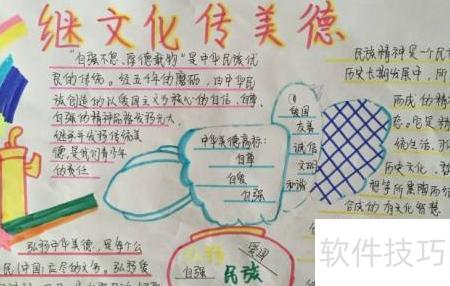 继文化传美德
"自强不息、厚德载物"是中华民族优
良的传统。经五千年的磨砺，由中华民
族创造的以爱国主义为核心的自信、自尊、
自强的精神品格发扬光大。
继承并发扬传统美
德，是我们青少年
的责任
中华美德高标：
自尊
自爱
自强
爱国
友善
诚信
文明
和谐
民族精神是一个民
历史长期发展中，所
而成的精
态。它是
统生活、
历史文化、
想等所熏陶而
合成的有文化智慧
弘扬中华美德，是每个公
民(中国)应尽的义务。弘扬爱
弘扬
爱国
自强
民族
软件技巧